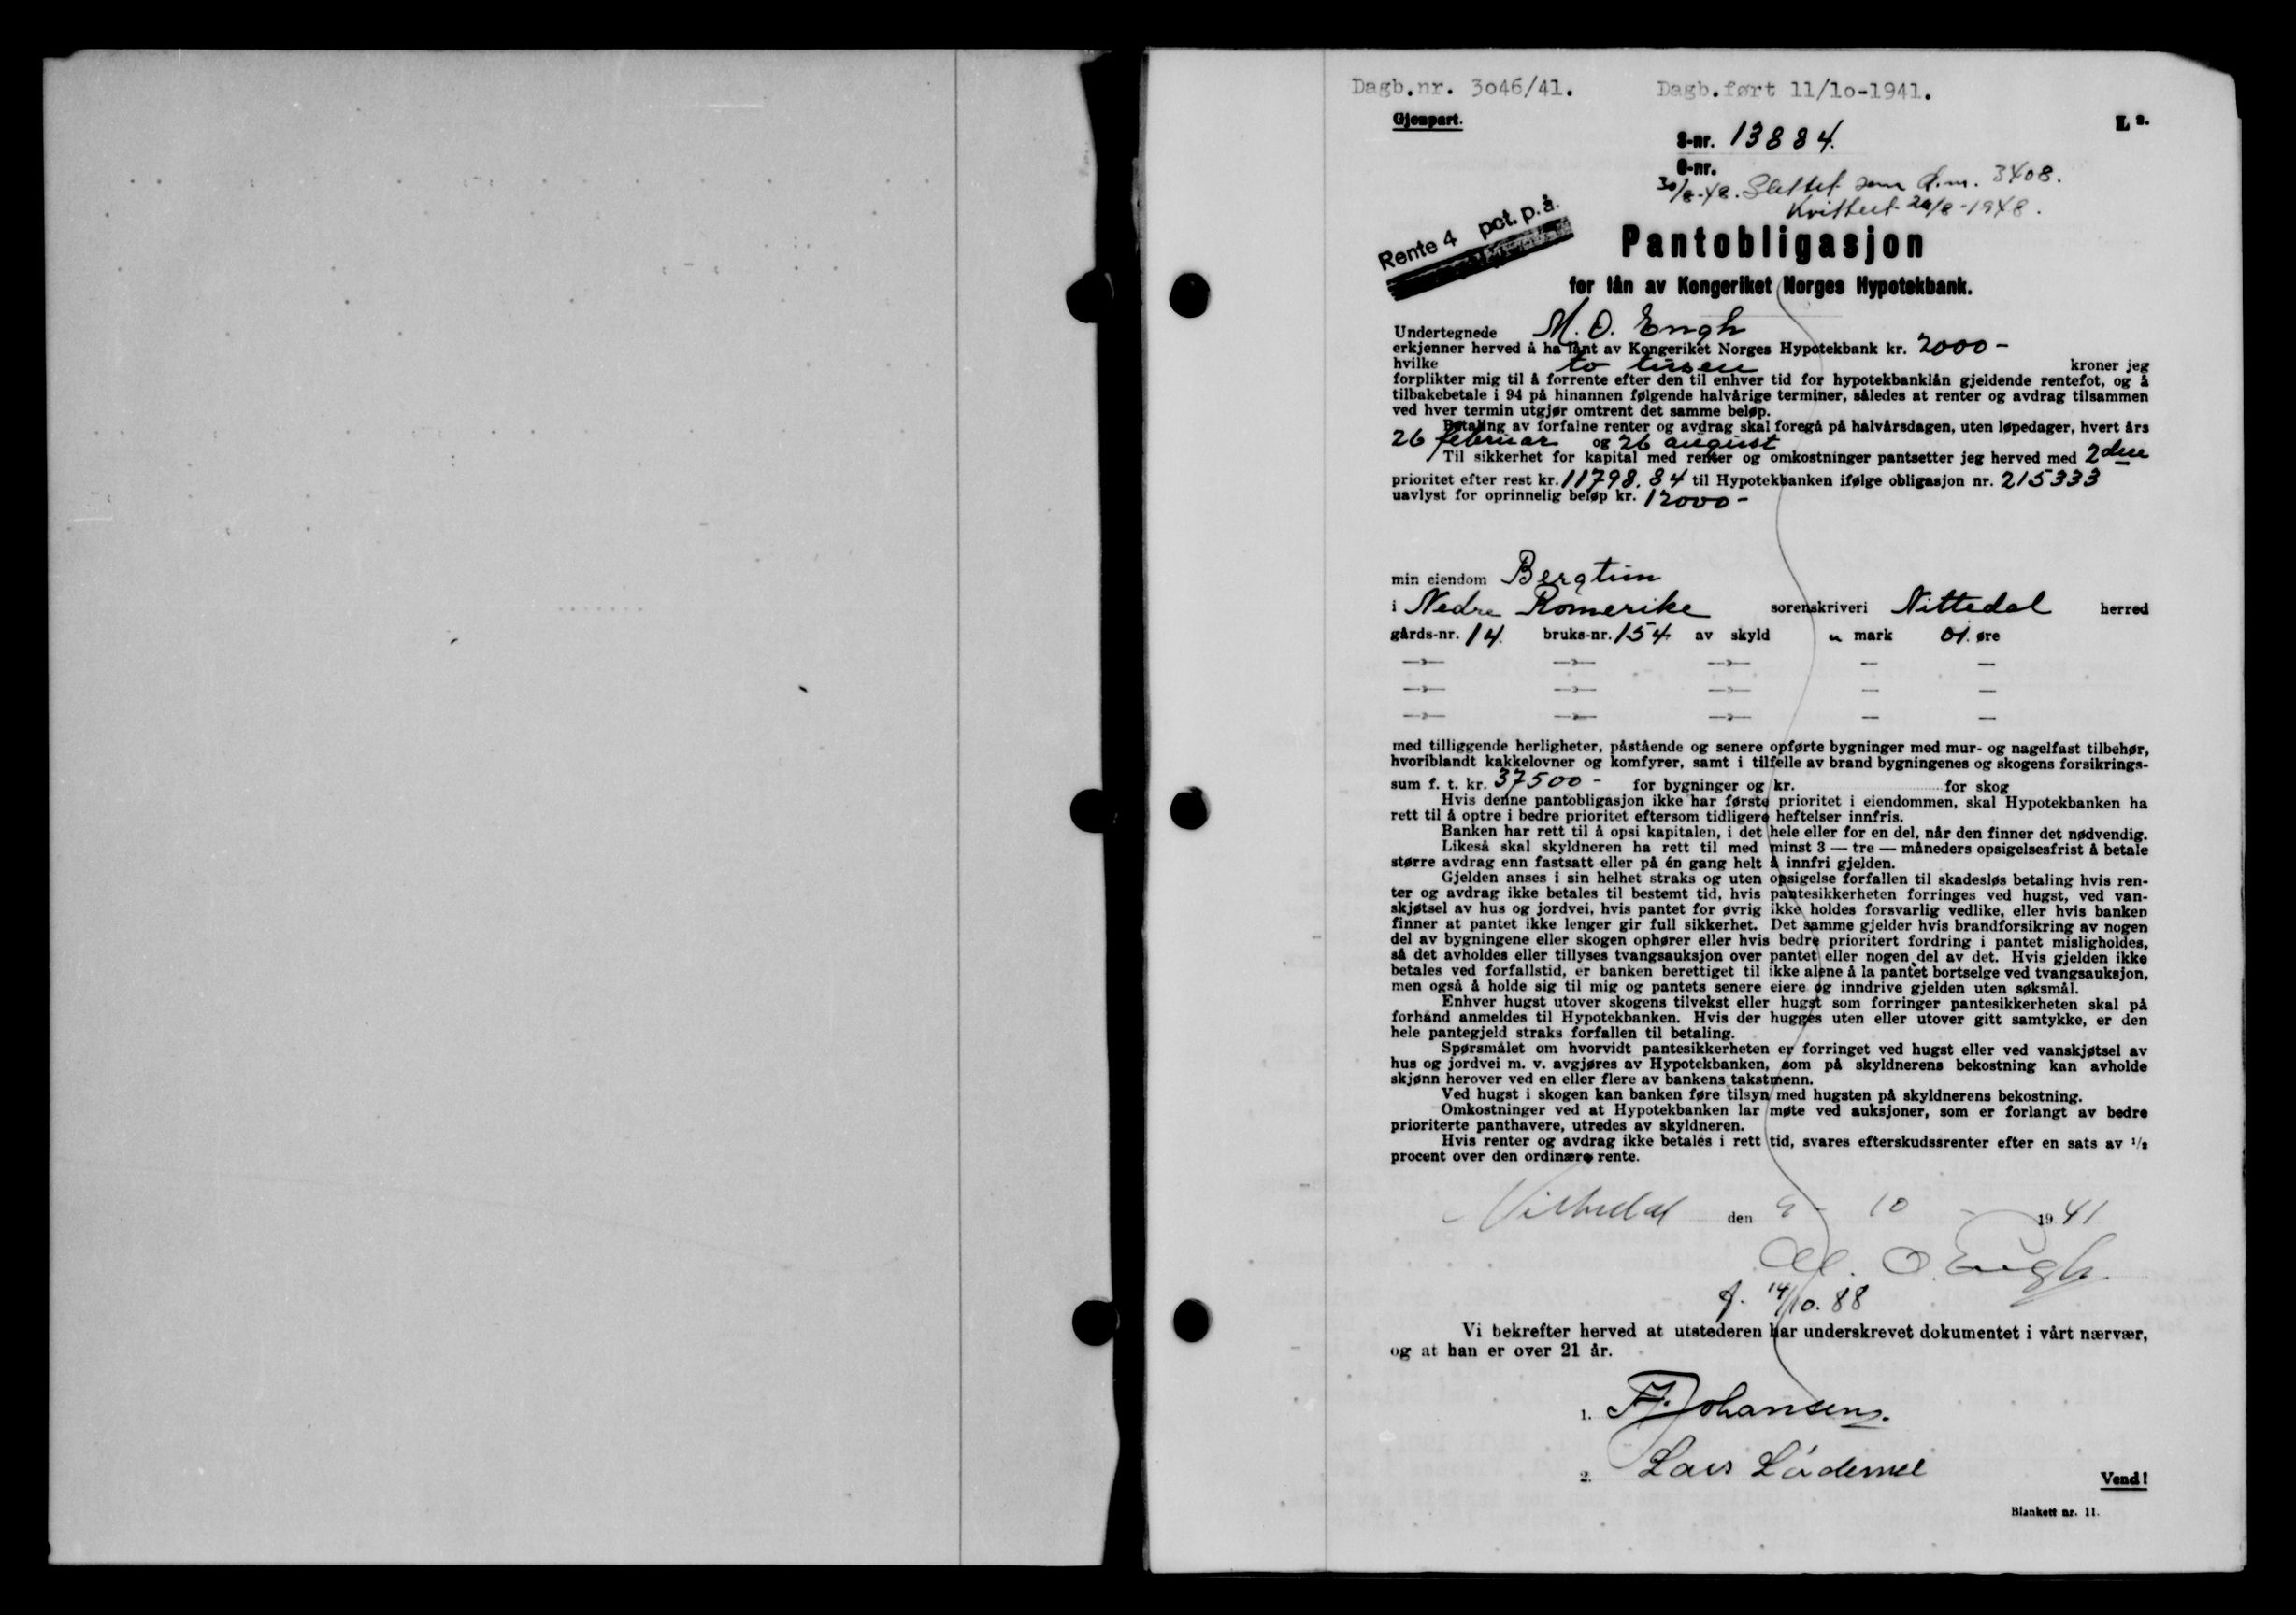 Dagb.nr. 3046/41. Dagb.ført 11/10-1941.
Gjenpart. L 2.
S-nr. 13884.
O-nr.
30/8-48. Slettet som d.m. 3408.
Kvittert 20/8-1948.
Rente 4 pct. p. å.
Pantobligasjon
for lån av Kongeriket Norges Hypotekbank.
Undertegnede M. O. Engh
erkjenner herved å ha lånt av Kongeriket Norges Hypotekbank kr. 2000 -
hvilke to tusen kroner jeg
forplikter mig til å forrente efter den til enhver tid for hypotekbanklån gjeldende rentefot, og å
tilbakebetale i 94 på hinannen følgende halvårige terminer, således at renter og avdrag tilsammen
ved hver termin utgjør omtrent det samme beløp.
Betaling av forfalne renter og avdrag skal foregå på halvårsdagen, uten løpedager, hvert års
26 februar og 26 august
Til sikkerhet for kapital med renter og omkostninger pantsetter jeg herved med 2den
prioritet efter rest kr. 11798.84 til Hypotekbanken ifølge obligasjon nr. 215333
uavlyst for oprinnelig beløp kr. 12000 -
min eiendom Bergtun
i Nedre Romerike sorenskriveri Nittedal herred
gårds-nr. 14. bruks-nr. 154 av skyld " mark 01. øre
—»— —»— —»— — —
—»— —»— —»— — —
—»— —»— —»— — —
med tilliggende herligheter, påstående og senere opførte bygninger med mur- og nagelfast tilbehør,
hvoriblandt kakkelovner og komfyrer, samt i tilfelle av brand bygningenes og skogens forsikrings-
sum f. t. kr. 37500 - for bygninger og kr. for skog
Hvis denne pantobligasjon ikke har første prioritet i eiendommen, skal Hypotekbanken ha
rett til å optre i bedre prioritet eftersom tidligere heftelser innfris.
Banken har rett til å opsi kapitalen, i det hele eller for en del, når den finner det nødvendig.
Likeså skal skyldneren ha rett til med minst 3 — tre — måneders opsigelsesfrist å betale
større avdrag enn fastsatt eller på én gang helt å innfri gjelden.
Gjelden anses i sin helhet straks og uten opsigelse forfallen til skadesløs betaling hvis ren-
ter og avdrag ikke betales til bestemt tid, hvis pantesikkerheten forringes ved hugst, ved van-
skjøtsel av hus og jordvei, hvis pantet for øvrig ikke holdes forsvarlig vedlike, eller hvis banken
finner at pantet ikke lenger gir full sikkerhet. Det samme gjelder hvis brandforsikring av nogen
del av bygningene eller skogen ophører eller hvis bedre prioritert fordring i pantet misligholdes,
så det avholdes eller tillyses tvangsauksjon over pantet eller nogen del av det. Hvis gjelden ikke
betales ved forfallstid, er banken berettiget til ikke alene å la pantet bortselge ved tvangsauksjon,
men også å holde sig til mig og pantets senere eiere og inndrive gjelden uten søksmål.
Enhver hugst utover skogens tilvekst eller hugst som forringer pantesikkerheten skal på
forhånd anmeldes til Hypotekbanken. Hvis der hugges uten eller utover gitt samtykke, er den
hele pantegjeld straks forfallen til betaling.
Spørsmålet om hvorvidt pantesikkerheten er forringet ved hugst eller ved vanskjøtsel av
hus og jordvei m. v. avgjøres av Hypotekbanken, som på skyldnerens bekostning kan avholde
skjønn herover ved en eller flere av bankens takstmenn.
Ved hugst i skogen kan banken føre tilsyn med hugsten på skyldnerens bekostning.
Omkostninger ved at Hypotekbanken lar møte ved auksjoner, som er forlangt av bedre
prioriterte panthavere, utredes av skyldneren.
Hvis renter og avdrag ikke betales i rett tid, svares efterskudssrenter efter en sats av 1/2
procent over den ordinære rente.
Nittedal den 9 - 10 - 1941
M. O. Engh.
f. 14/10. 88
Vi bekrefter herved at utstederen har underskrevet dokumentet i vårt nærvær,
og at han er over 21 år.
1. F. Johansen.
2. Lars
Vend!
Blankett nr. 11.